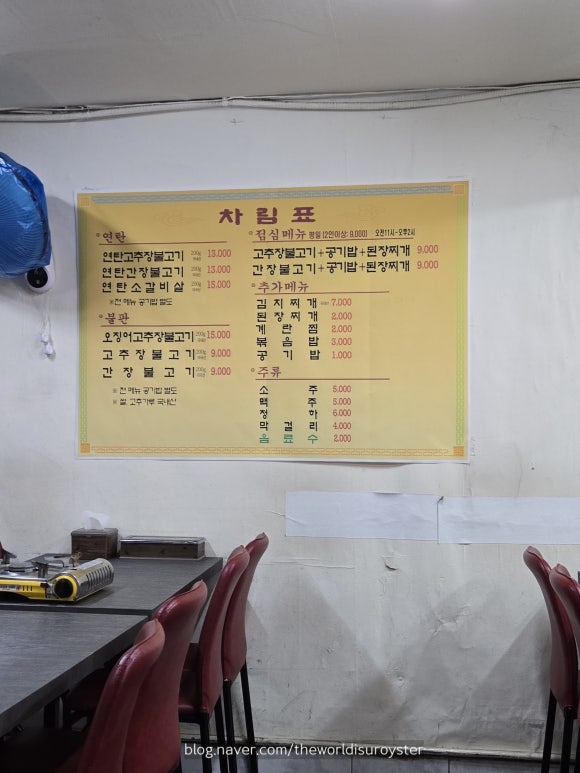 차림표
연탄
연탄고추장불고기 200g 13.000
연탄간장불고기 200g 13.000
연탄소갈비살 200g 15.000
※전 메뉴 공기밥 별도
불판
오징어고추장불고기 200g 15.000
고추장불고기 200g 9.000
간장불고기 200g 9.000
※ 전 메뉴 공기밥 별도
점심메뉴 평일 (2인이상: 9.000) 오전11시~오후2시
고추장불고기+공기밥+된장찌개 9.000
간장불고기+공기밥+된장찌개 9.000
추가메뉴
김치찌개 7.000
된장찌개 2.000
계란찜 2.000
볶음밥 3.000
공기밥 1.000
주류
소주 5.000
맥주 5.000
청하 6.000
막걸리 4.000
음료수 2.000
blog.naver.com/theworldisuroyster